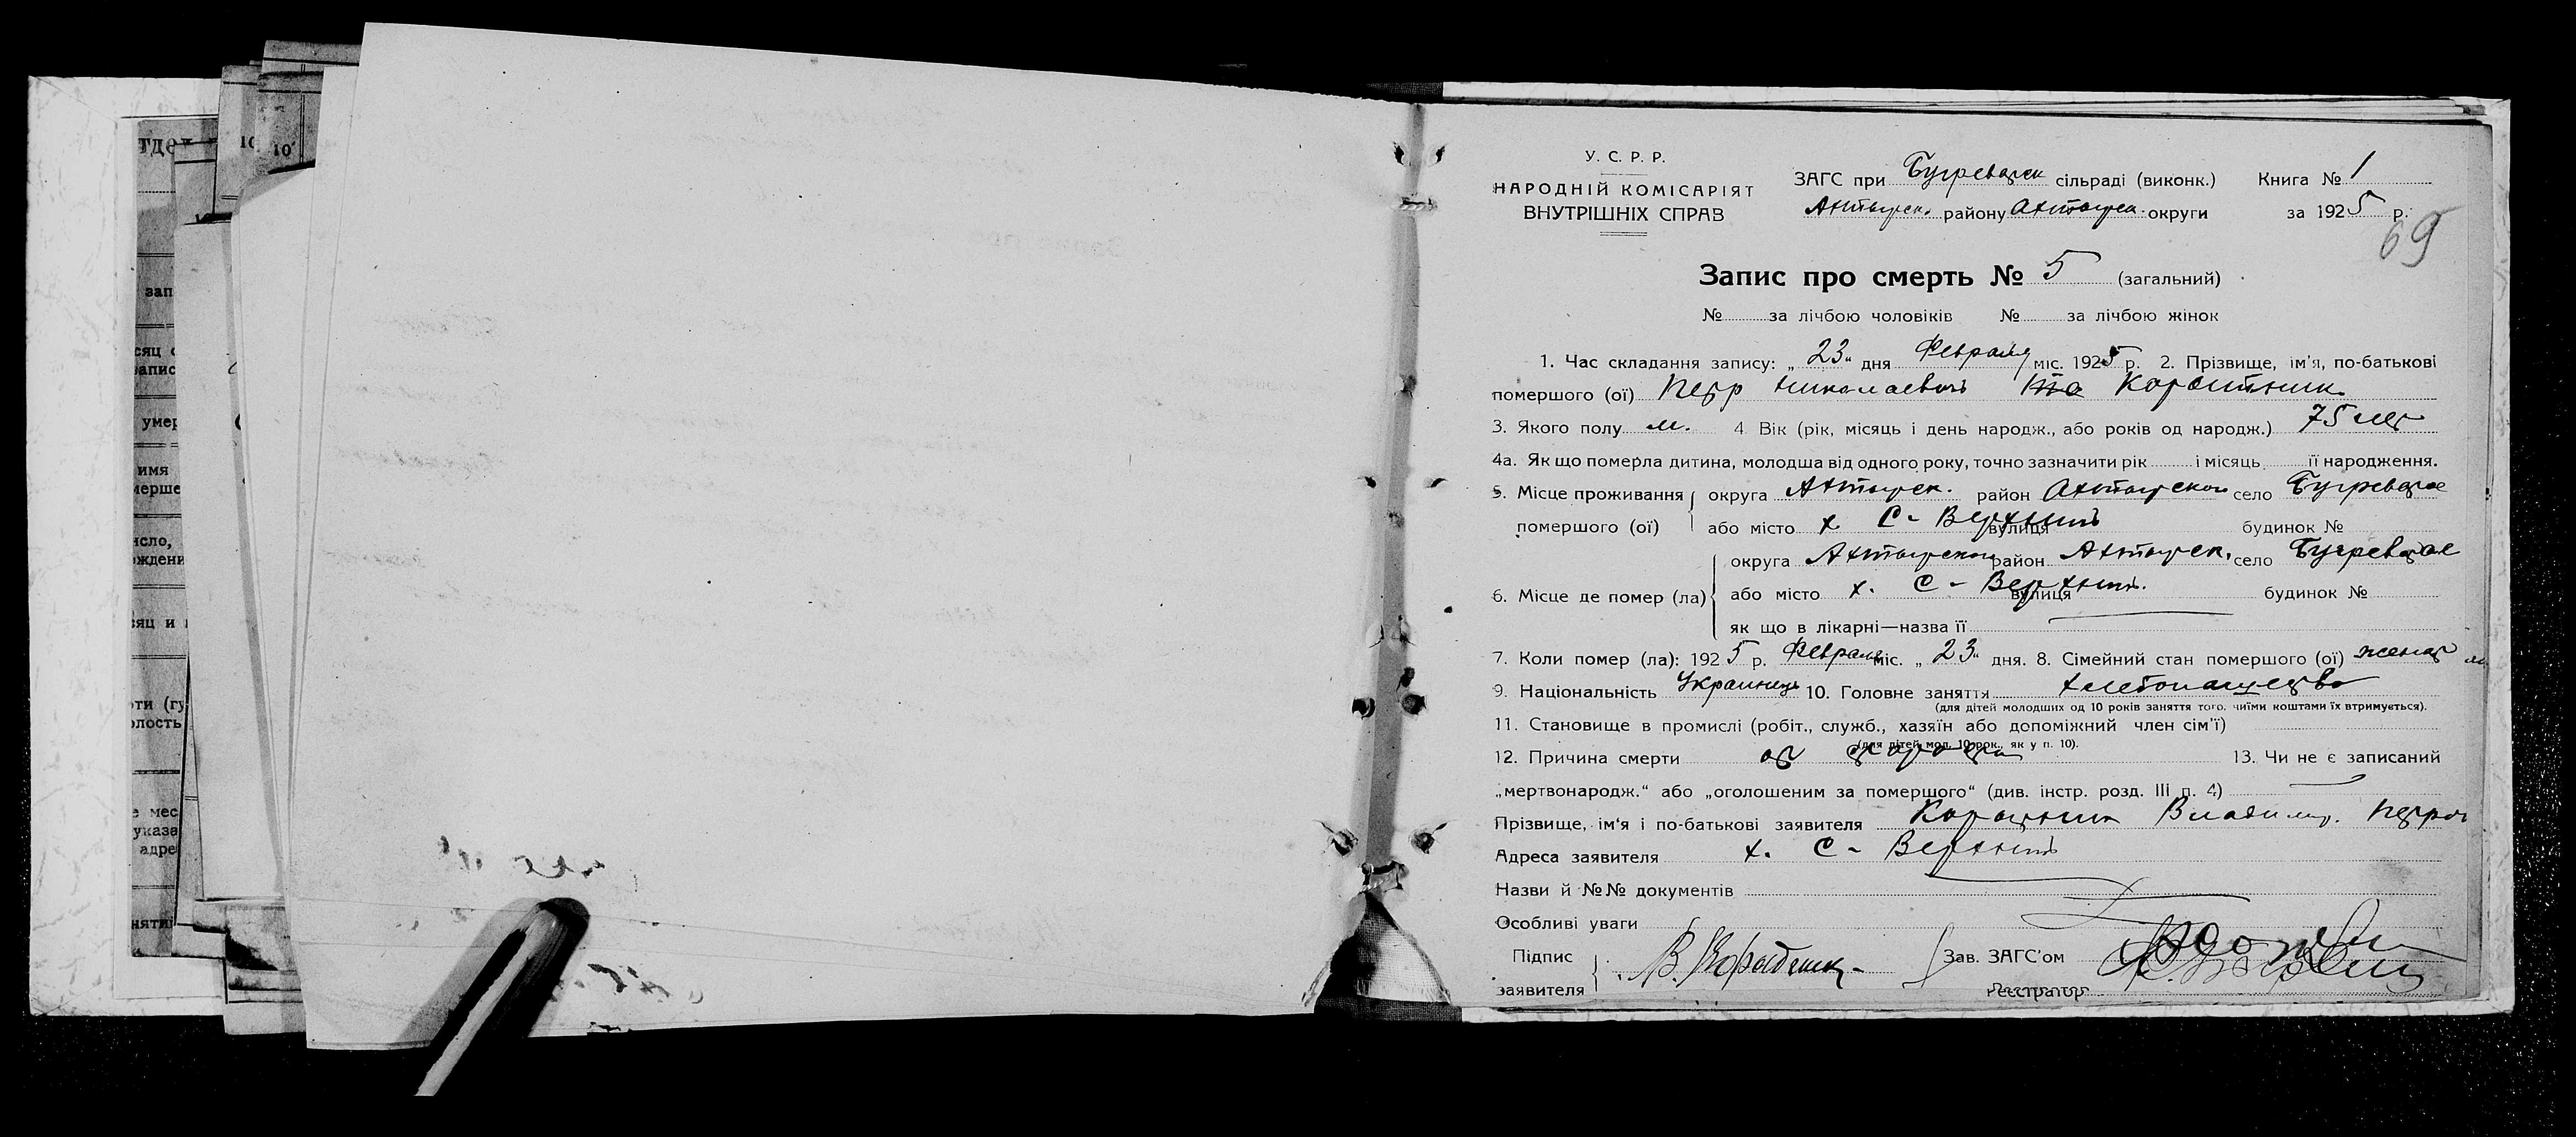 У. С. Р. Р.
НАРОДНІЙ КОМІСАРІЯТ
ВНУТРІШНІХ СПРАВ
ЗАГС при Бугреватск сільраді (виконк.) Книга № 1
Ахтырск. району Ахтырск. округи за 1925 р.
69
Запис про смерть № 5 (загальний)
№ за лічбою чоловіків № за лічбою жінок
1. Час складання запису: „ 23 “ дня Февраля міс. 1925 р. 2. Прізвище, ім’я, по-батькові
помершого (ої) Петр Николаевич
3. Якого полу м. 4 Вік (рік, місяць і день народж., або років од народж.) 75 лет
4а. Як що померла дитина, молодша від одного року, точно зазначити рік і місяць її народження.
5. Місце проживання округа Ахтырск. район Ахтырском село Бугреватое
помершого (ої) або місто х. С - вулиця будинок №
округа Ахтырском район Ахтырск. село Бугреватое
6. Місце де помер (ла) або місто х. С - вулиця будинок №
як що в лікарні—назва її
7. Коли помер (ла): 1925 р. Февраля міс. „ 23 “ дня. 8. Сімейний стан помершого (ої) женат
9. Національність Украинец 10. Головне заняття хлебопашество
(для дітей молодших од 10 років заняття того, чиїми коштами їх втримується).
11. Становище в промислі (робіт., служб., хазяїн або допоміжний член сім’ї)
(для дітей мол. 10 рок., як у п. 10).
12. Причина смерти от 13. Чи не є записаний
„мертвонародж.“ або „оголошеним за помершого“ (див. інстр. розд. III п. 4)
Прізвище, ім‘я і по-батькові заявителя Владимир. Петров
Адреса заявителя х. С -
Назви й №№ документів
Особливі уваги
Підпис
заявителя
Зав. ЗАГС’ом
Реєстратор
тдел
10
10
зап
сяц
запис
умер
имя
мерше
исло,
ождени
яц и
ти (гу
лость
е мес
указа
адре
няти